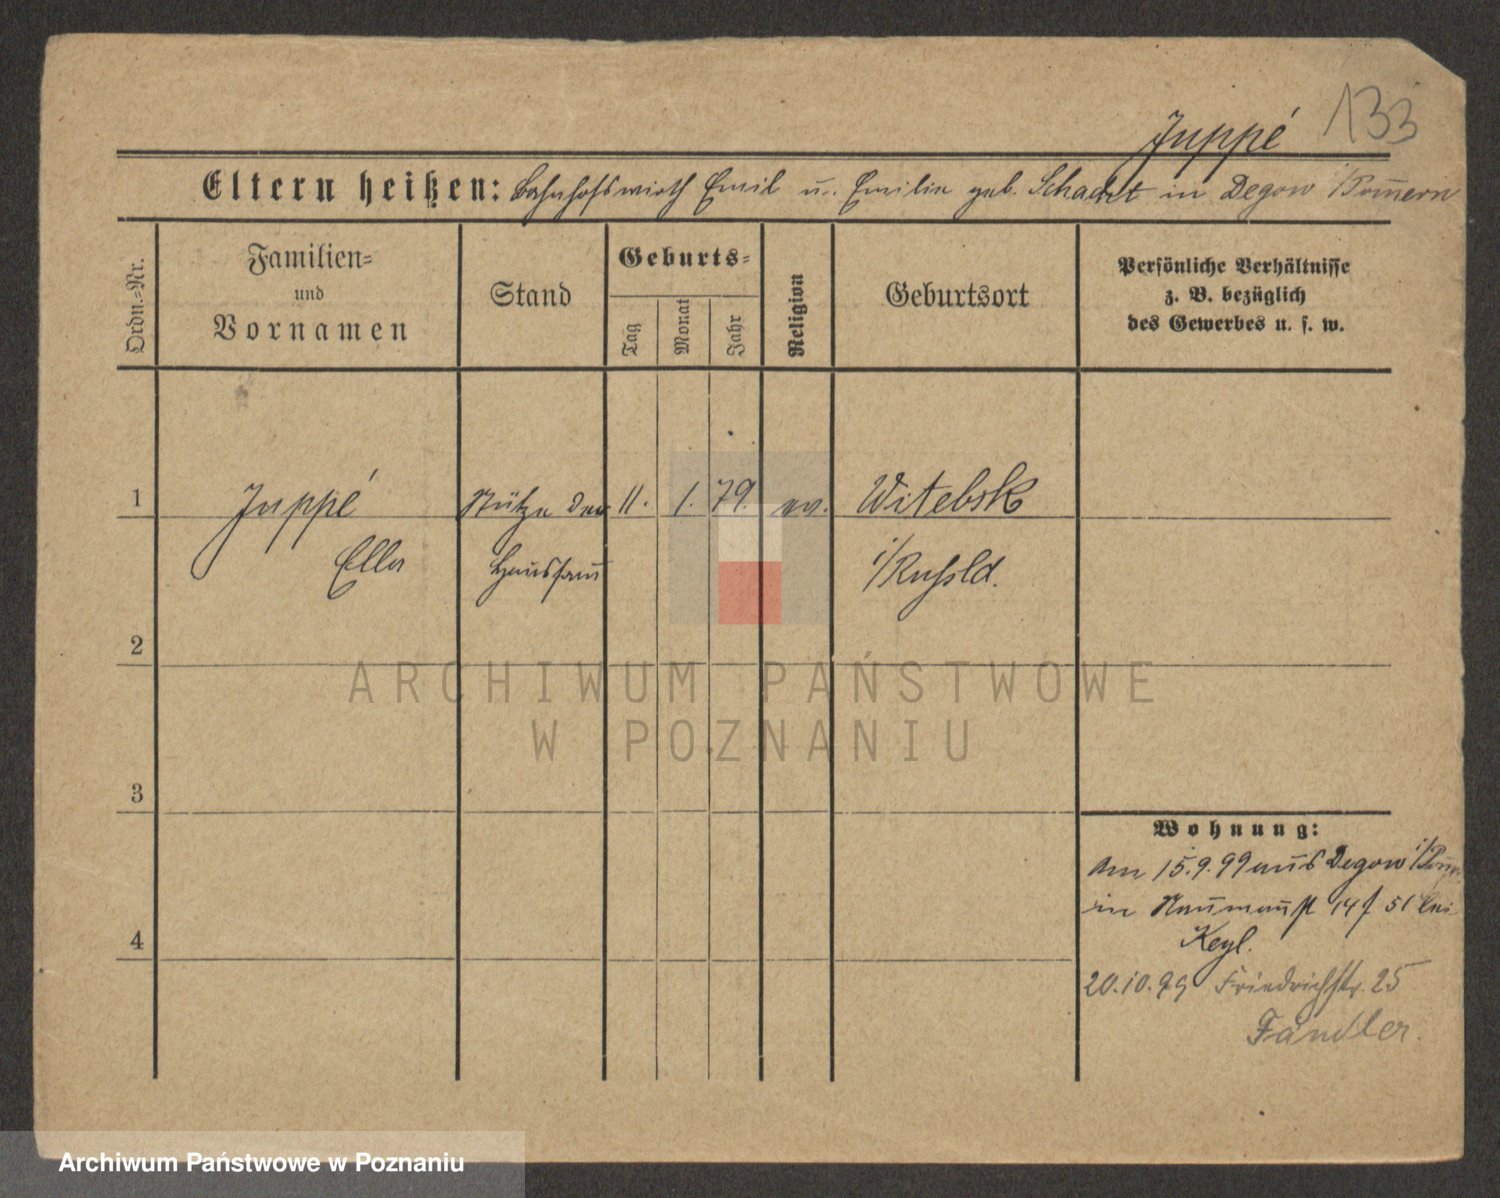 133
Juppé
Eltern heißen: Bahnhofswirth Emil u. Emilie geb. Schacht in Degow i/Pom̄ern
Ordn.-Nr.
Familien-
und
Vornamen
Stand
Geburts-
Tag
Monat
Jahr
Religion
Geburtsort
Persönliche Verhältnisse
z. B. bezüglich
des Gewerbes u. s. w.
1
Juppé
Ella
Stütze der
Hausfrau
11.
1.
79.
ev.
Witebsk
i/Russld.
2
3
4
Wohnung:
Am 15.9.99 aus Degow i/Pom̄.
in Naumanst 14 51 bei
Keyl.
20.10.99 Friedrichstr. 25
Fandler.
ARCHIWUM PAŃSTWOWE
W POZNANIU
Archiwum Państwowe w Poznaniu